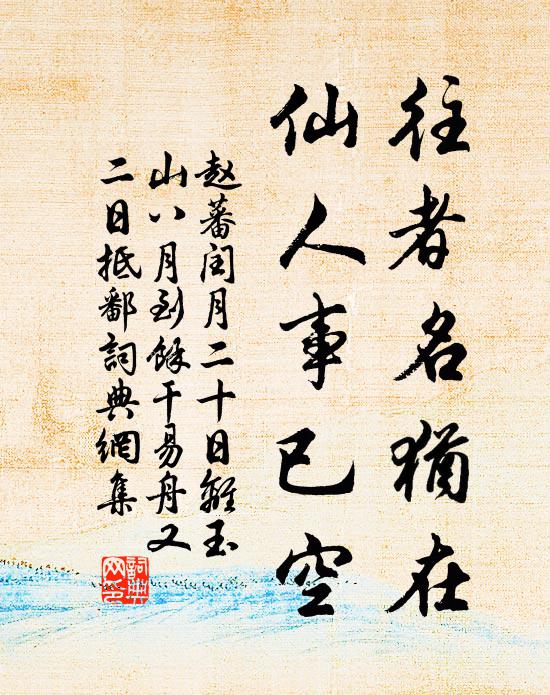 往者名犹在
仙人事已空
赵蕃闰月二十日離玉
山八月到餘干易舟又
二日抵鄱詞典網集
詞典
网